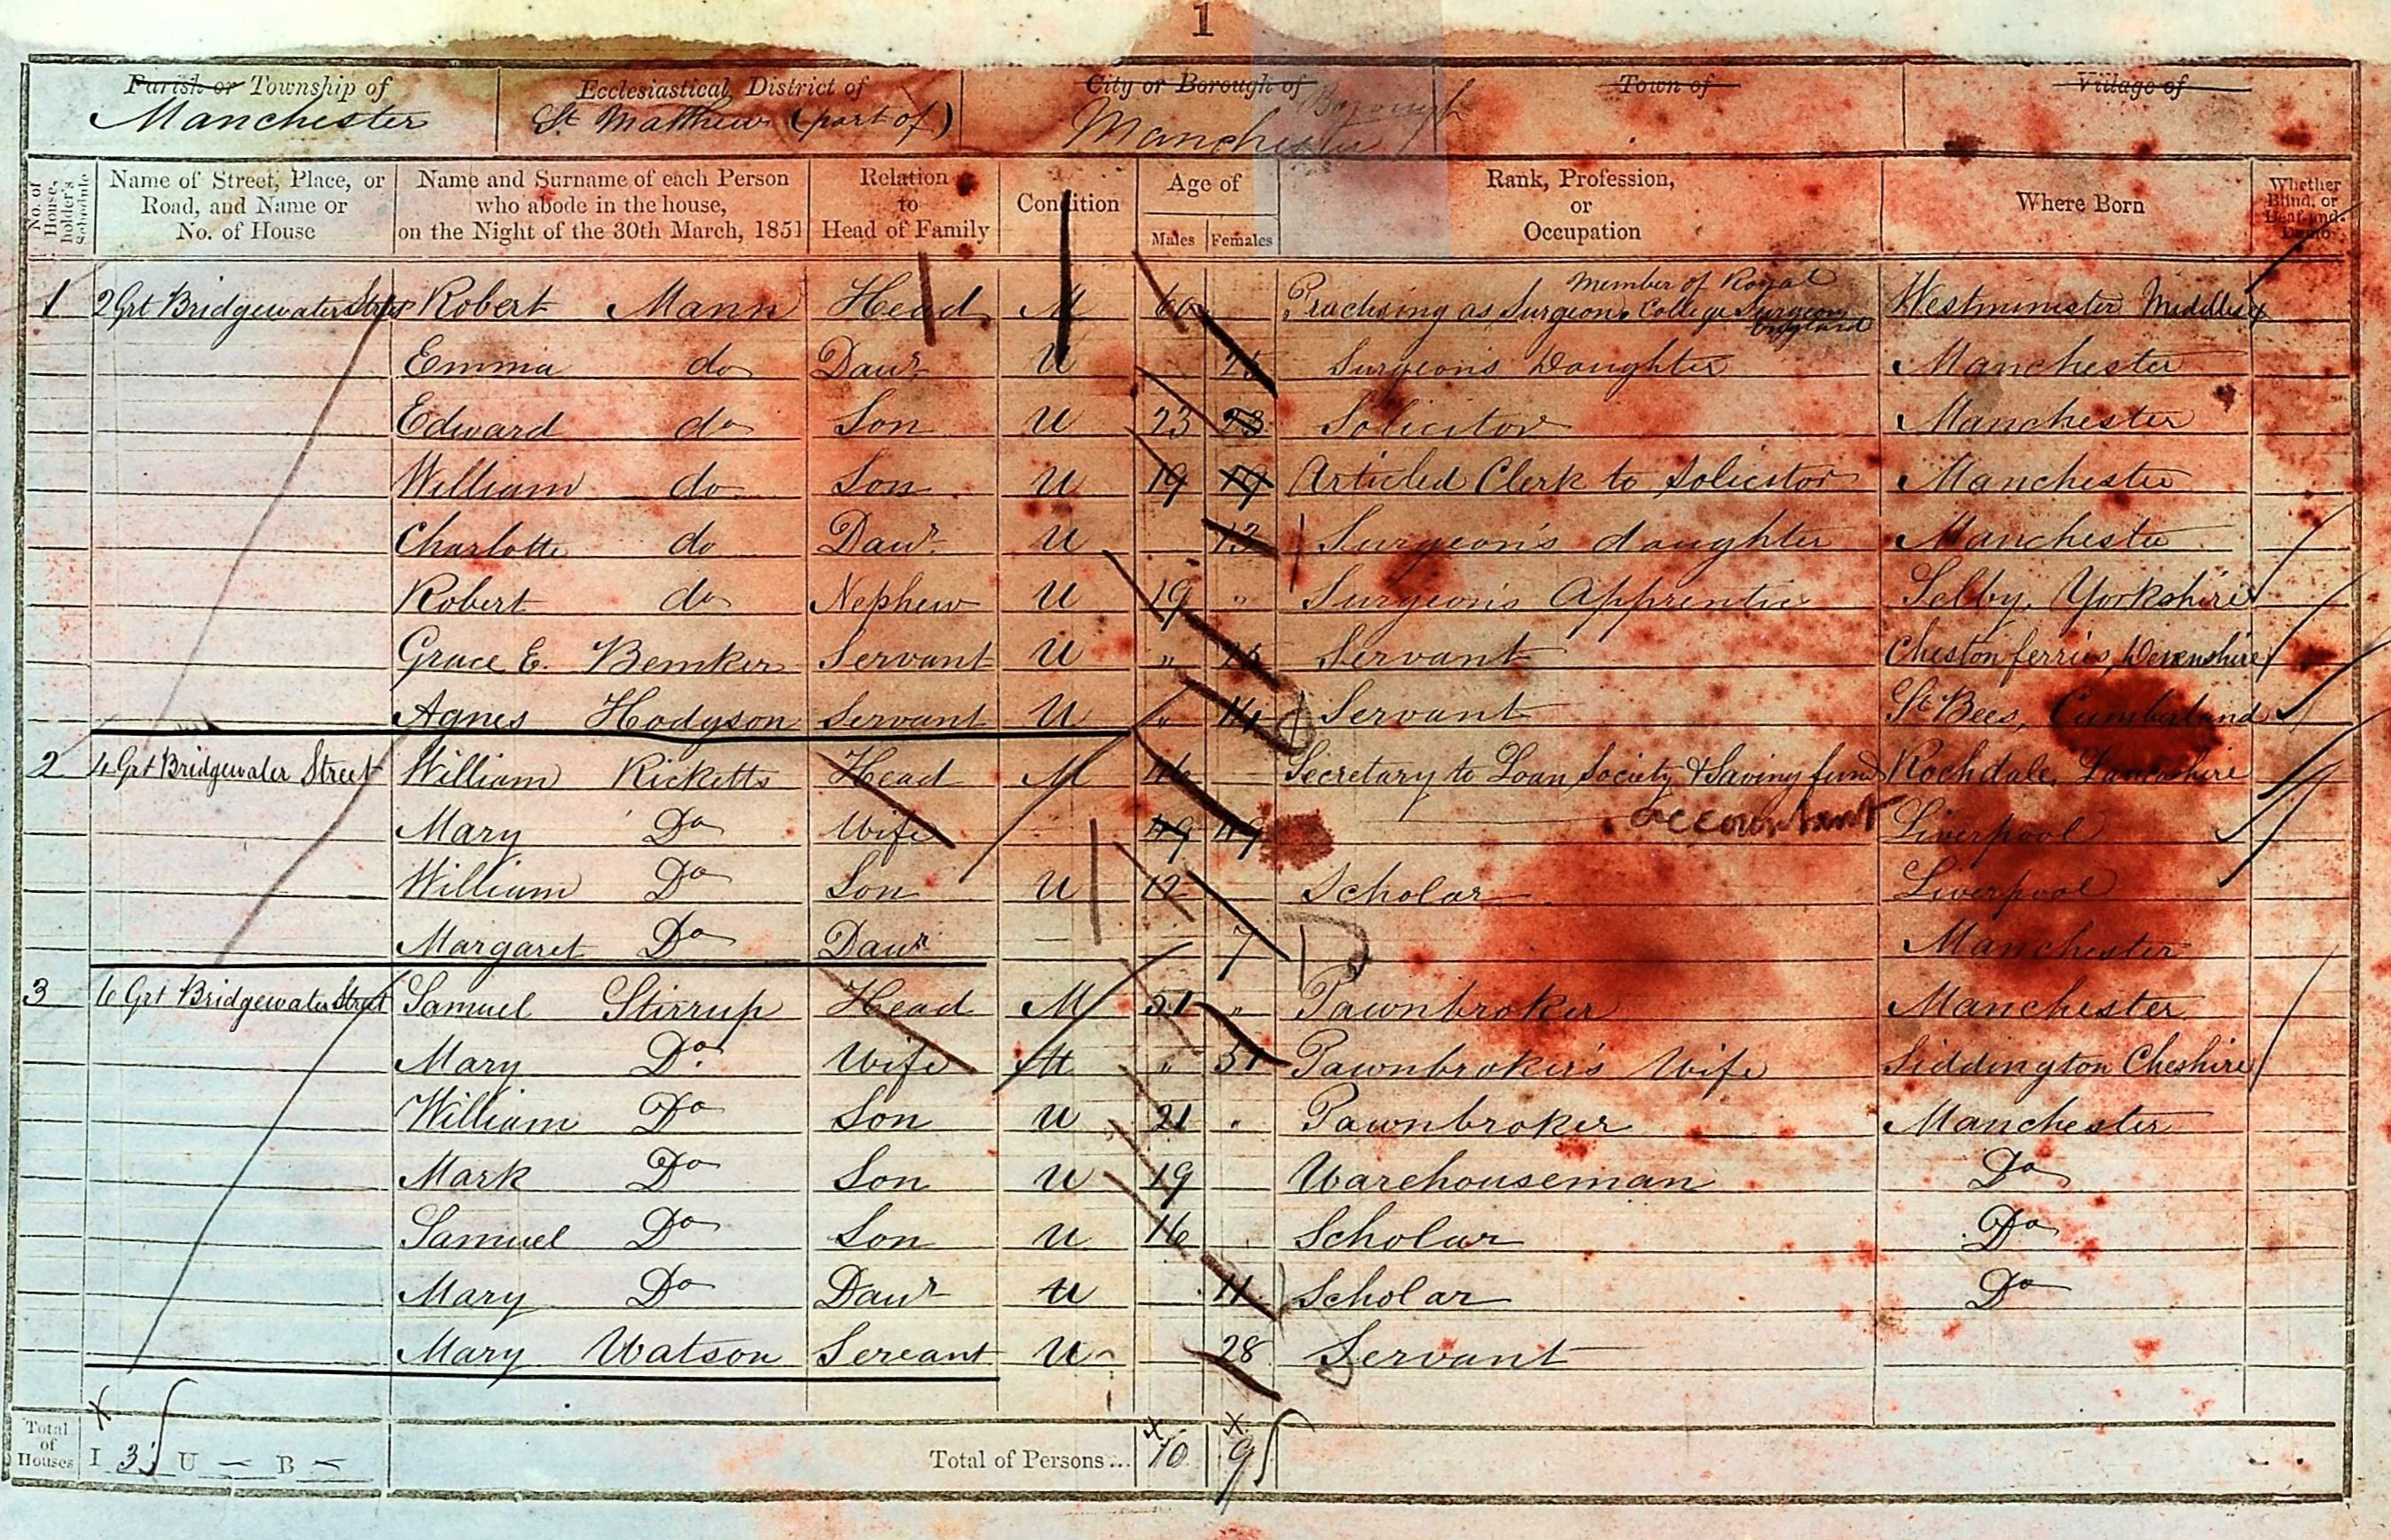 1
Parish or Township of Ecclesiastical District of City or Borough of Town of Village of
Manchester St. Matthew (part of) Manchester Borough
No. of House-holder's Schedule
Name of Street, Place, or Road, and Name or No. of House
Name and Surname of each Person who abode in the house, on the Night of the 30th March, 1851
Relation to Head of Family
Condition
Age of
Males Females
Rank, Profession, or Occupation
Where Born
Whether Blind, or Deaf-and-Dumb
Member of Royal
1 2 Grt Bridgewater Street Robert Mann Head M 60 Practising as Surgeon. College Surgeon Westminster Middlesex
England
Emma do Daur U Surgeon's Daughter Manchester
Edward do Son U 23 23 Solicitor Manchester
William do Son U 19 19 Articled Clerk to Solicitor Manchester
Charlotte do Daur U 13 Surgeon's daughter Manchester
Robert do Nephew U 19 " Surgeon's Apprentice Selby, Yorkshire
Grace E. Servant U " Servant Devonshire
Agnes Hodgson Servant U " 14 Servant St Bees, Cumberland
2 4 Grt Bridgewater Street William Ricketts Head M 46 Secretary to Loan Society & Saving fund Rochdale, Lancashire
accountant
Mary Do Wife 49 49 Liverpool
William Do Son U 12 Scholar Liverpool
Margaret Do Daur — — 7 Manchester
3 6 Grt Bridgewater Street Samuel Stirrup Head M 51 " Pawnbroker Manchester
Mary Do. Wife M " 51 Pawnbroker's Wife Siddington Cheshire
William Do Son U 21 " Pawnbroker Manchester
Mark Do Son U 19 Warehouseman Do
Samuel Do Son U 16 Scholar Do
Mary Do Daur U 11 Scholar Do
Mary Watson Servant U 28 Servant
Total of Houses I 3 U — B — Total of Persons... 10 9